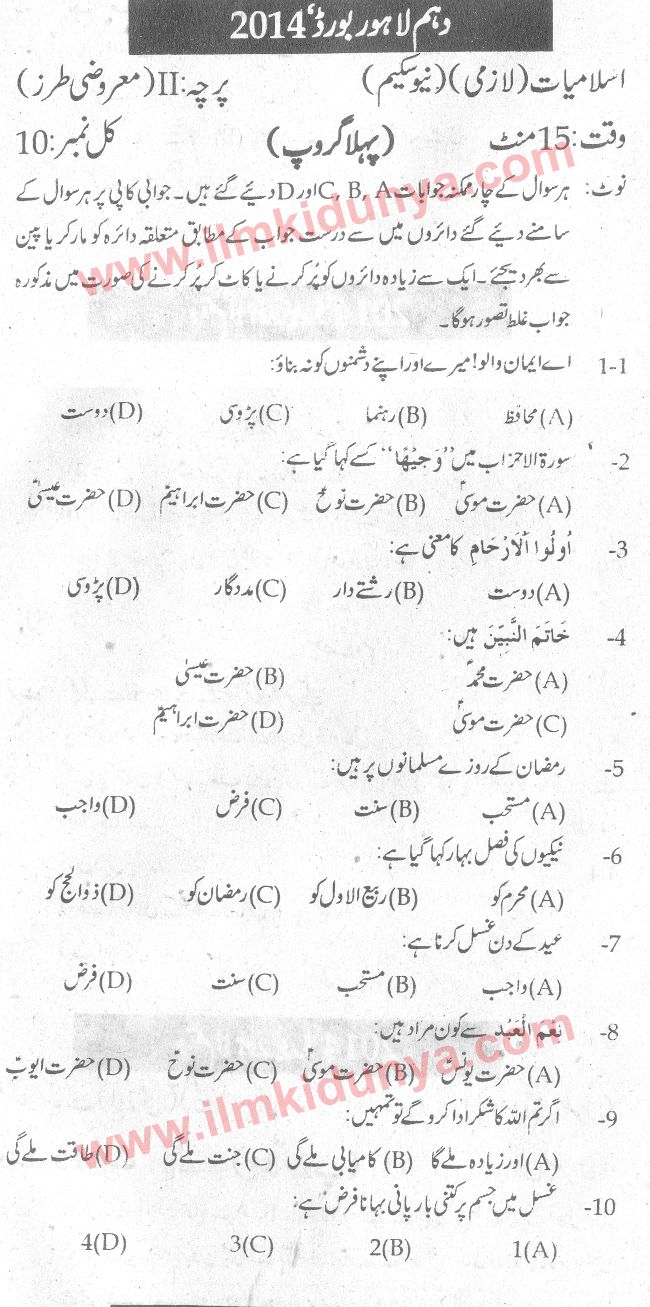 دہم لاہور بورڈ، 2014
اسلامیات (لازمی) (نیو سکیم) پرچہ: II (معروضی طرز)
وقت: 15 منٹ (پہلا گروپ) کل نمبر: 10
نوٹ: ہر سوال کے چار ممکنہ جوابات C, B, A اور D دیئے گئے ہیں۔ جوابی کاپی پر ہر سوال کے
سامنے دیئے گئے دائروں میں سے درست جواب کے مطابق متعلقہ دائرہ کو مارکر یا پین
سے بھر دیجئے۔ ایک سے زیادہ دائروں کو پُر کرنے یا کاٹ کر پُر کرنے کی صورت میں مذکورہ
جواب غلط تصور ہوگا۔
www.ilmkidunya.com
1-1 اے ایمان والو! میرے اور اپنے دشمنوں کو نہ بناؤ:
(A) محافظ (B) رہنما (C) پڑوسی (D) دوست
2- سورۃ الاحزاب میں ”وَجِیْھًا“ کسے کہا گیا ہے:
(A) حضرت موسیٰؑ (B) حضرت نوحؑ (C) حضرت ابراہیمؑ (D) حضرت عیسیٰؑ
3- اُولُوا الْاَرْحَامِ کا معنی ہے:
(A) دوست (B) رشتے دار (C) مددگار (D) پڑوسی
4- خَاتَمَ النَّبِیّٖنَ ہیں:
(A) حضرت محمدؐ (B) حضرت عیسیٰ
(C) حضرت موسیٰؑ (D) حضرت ابراہیمؑ
5- رمضان کے روزے مسلمانوں پر ہیں:
(A) مستحب (B) سنت (C) فرض (D) واجب
6- نیکیوں کی فصل بہار کہا گیا ہے:
(A) محرم کو (B) ربیع الاول کو (C) رمضان کو (D) ذوالحج کو
7- عید کے دن غسل کرنا ہے:
(A) واجب (B) مستحب (C) سنت (D) فرض
8- نِعْمَ الْعَبْد سے کون مراد ہیں:
(A) حضرت یونسؑ (B) حضرت موسیٰؑ (C) حضرت نوحؑ (D) حضرت ایوبؑ
www.ilmkidunya.com
9- اگر تم اللہ کا شکر ادا کرو گے تو تمہیں:
(A) اور زیادہ ملے گا (B) کامیابی ملے گی (C) جنت ملے گی (D) طاقت ملے گی
10- غسل میں جسم پر کتنی بار پانی بہانا فرض ہے:
1(A) 2(B) 3(C) 4(D)